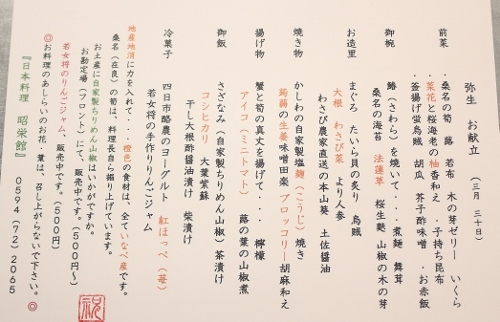 弥生 お献立 (三月 三十日)
前菜
・桑名の筍 蕗 若布 木の芽ゼリー いくら
・菜花と桜海老の柚香和え ・子持ち昆布
・釜揚げ蛍烏賊 胡瓜 芥子酢味噌 ・お赤飯
御椀
鰆(さわら)を焼いて・・・煮麺 舞茸
桑名の海苔 法蓮草 桜生麩 山椒の木の芽
お造里
まぐろ たいら貝の炙り 烏賊
大根 わさび菜 より人参
わさび農家直送の本山葵 土佐醤油
焼き物
かしわの自家製塩麹(こうじ)焼き
蒟蒻の生姜味噌田楽 ブロッコリー胡麻和え
揚げ物
蟹と筍の真丈を揚げて・・・ 檸檬
アイコ(ミニトマト) 蕗の葉の山椒煮
御飯
さざなみ(自家製ちりめん山椒)茶漬け
コシヒカリ 大葉紫蘇
干し大根酢醤油漬け 柴漬け
冷菓子
四日市酪農のヨーグルト 紅ほっぺ(苺)
若女将の手作りりんごジャム
地産地消に力を入れて・・・橙色の食材は、全ていなべ産です。
桑名(在良)の筍は、料理長自ら掘り上げています。
お土産に自家製ちりめん山椒はいかがですか。
お勘定場(フロント)にて、販売中です。(500円~)
若女将のりんごジャム、販売中です。(500円)
◎お料理のあしらいのお花・葉は、召し上がらないで下さい。◎
『日本料理 昭栄館』 0594(72)2065
祝